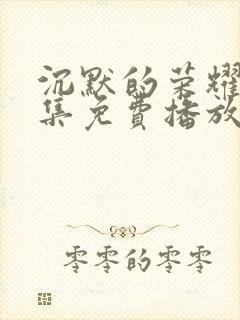 沉默的荣耀
集免费播放
零零的零零